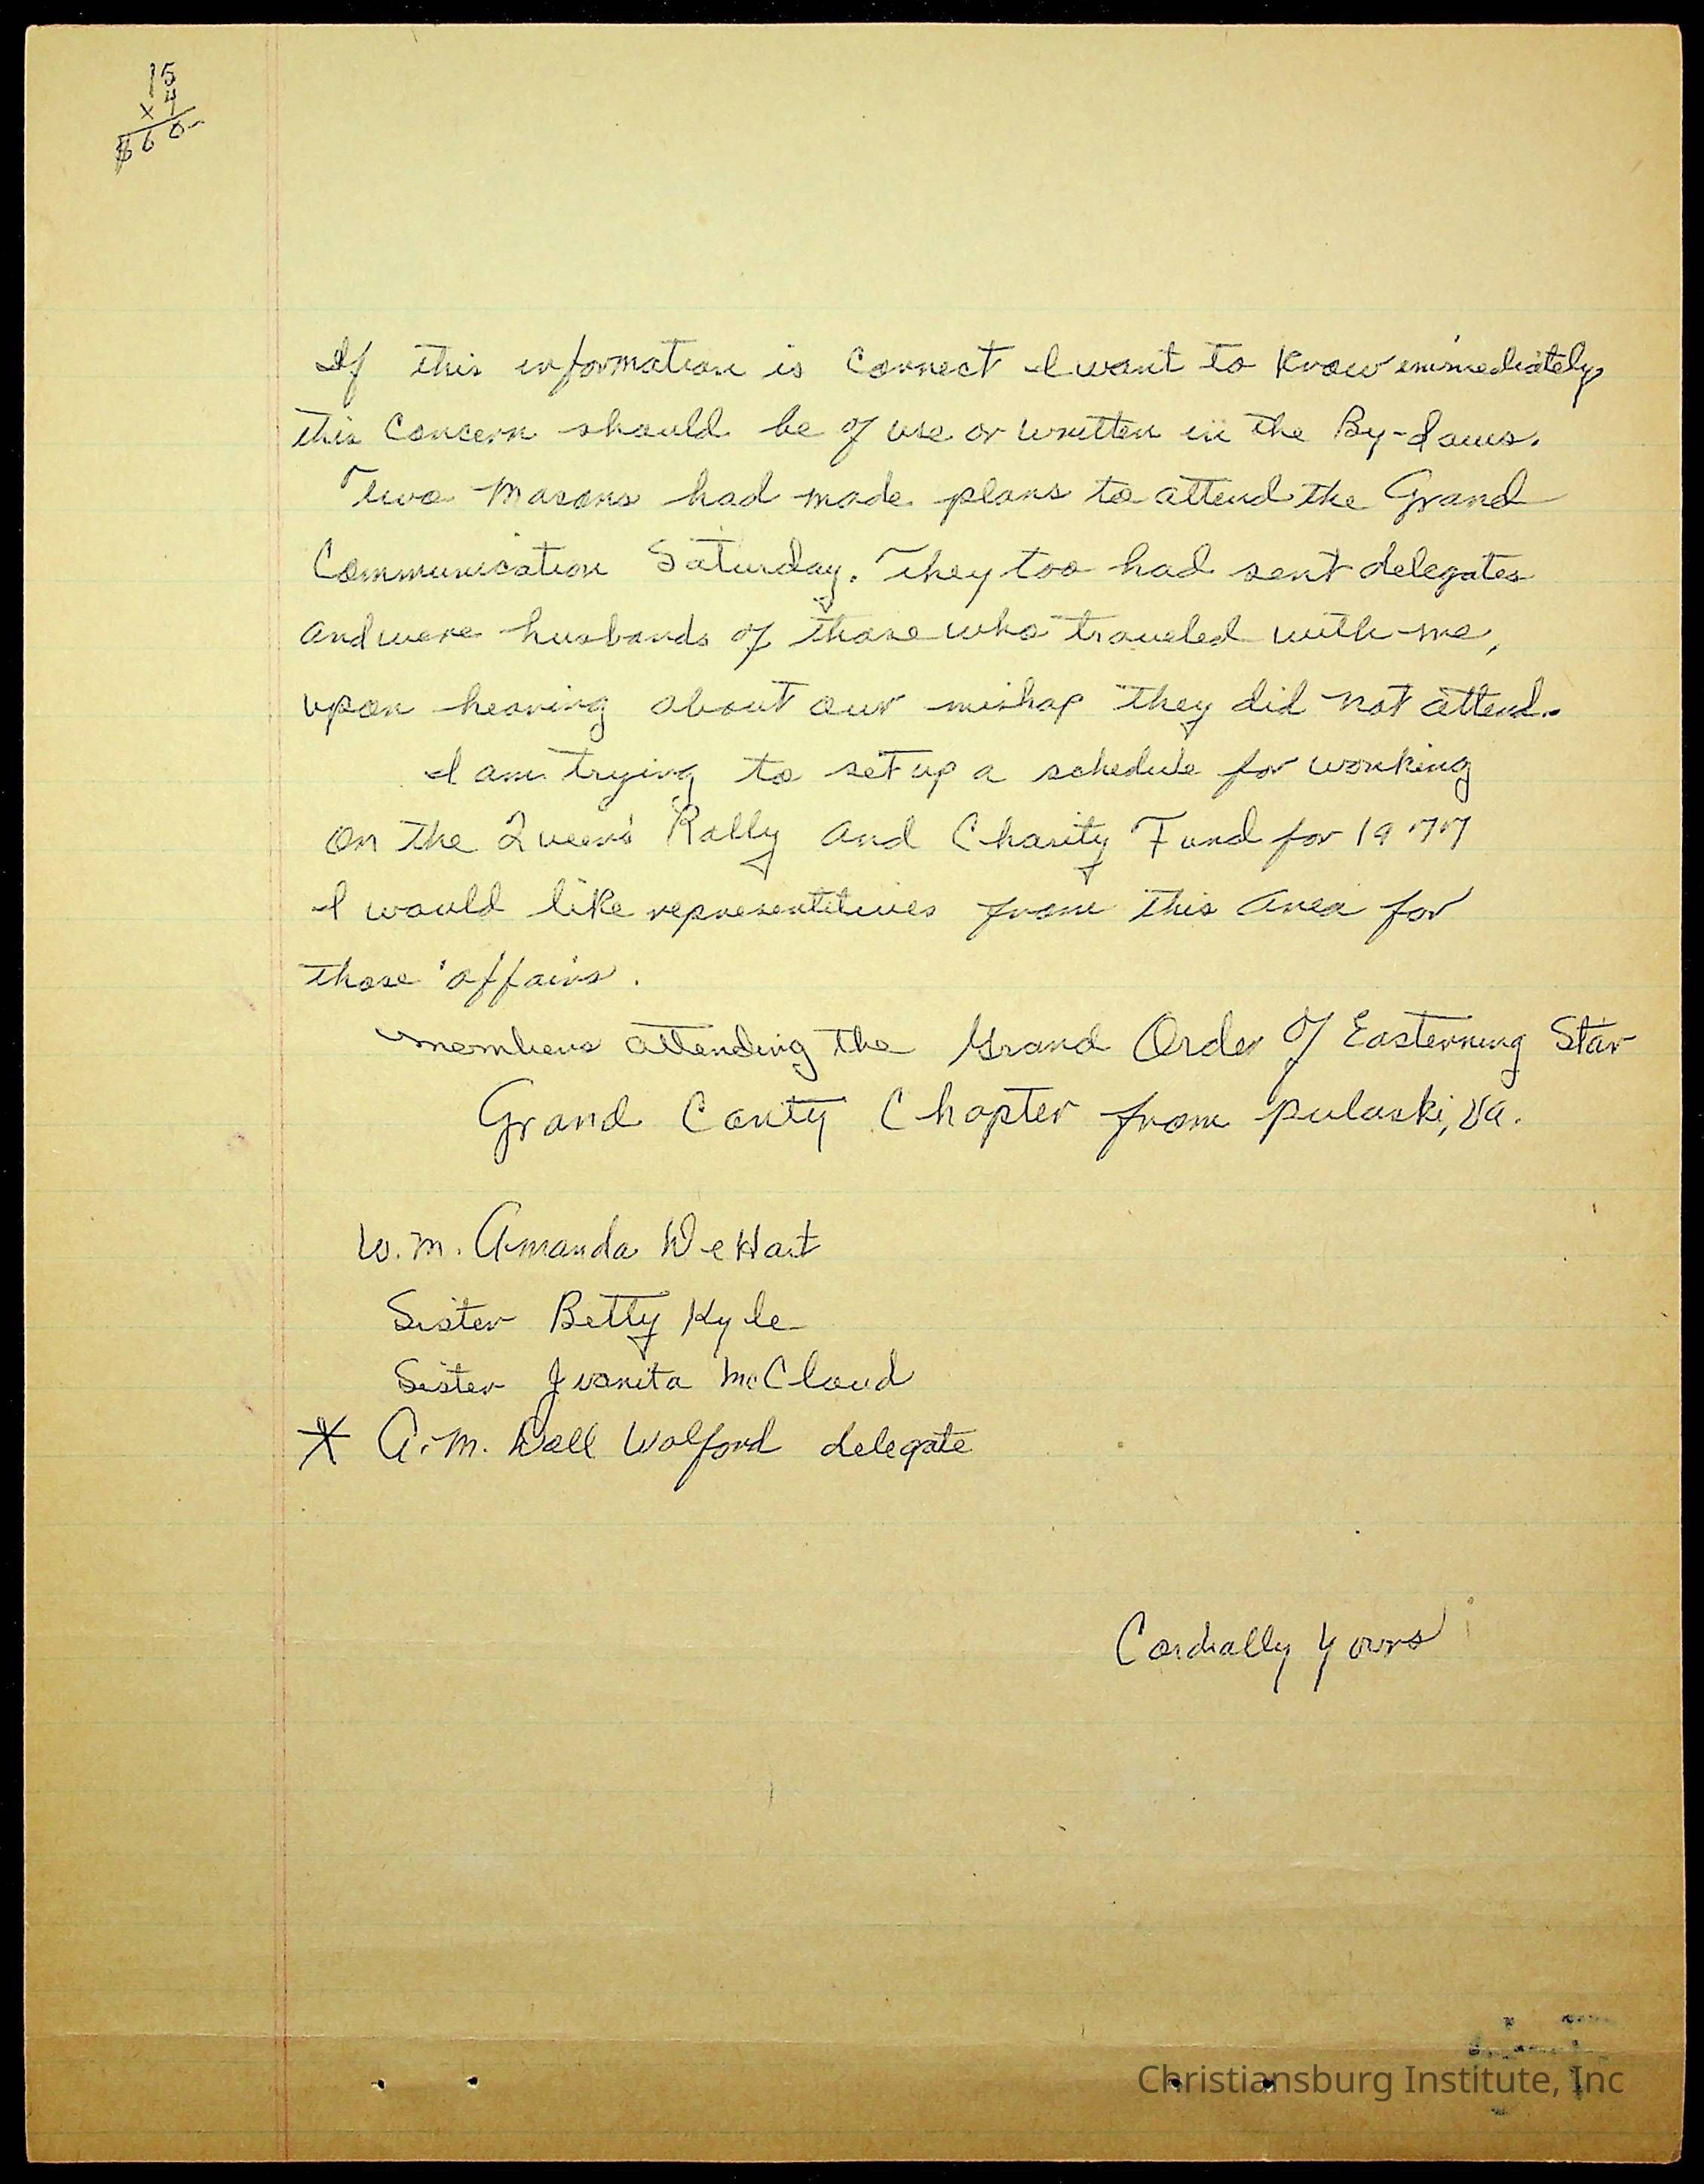 15
x 4
$60-
If this information is correct I want to know immediately
this concern should be of use or written in the By-Laws.
Two Masons had made plans to attend the Grand
Communication Saturday. They too had sent delegates
and were husbands of those who traveled with me,
upon hearing about our mishap they did not attend.
I am trying to set up a schedule for working
on the Queen's Rally and Charity Fund for 1977
I would like representitives from this area for
those affairs.
members attending the Grand Order of Easterning Star
Grand Canty Chapter from Pulaski, Va.
W. M. Amanda DeHart
Sister Betty Kyle
Sister Juanita McCloud
* A. M. Dall Wolford delegate
Cordially Yours
Christiansburg Institute, Inc